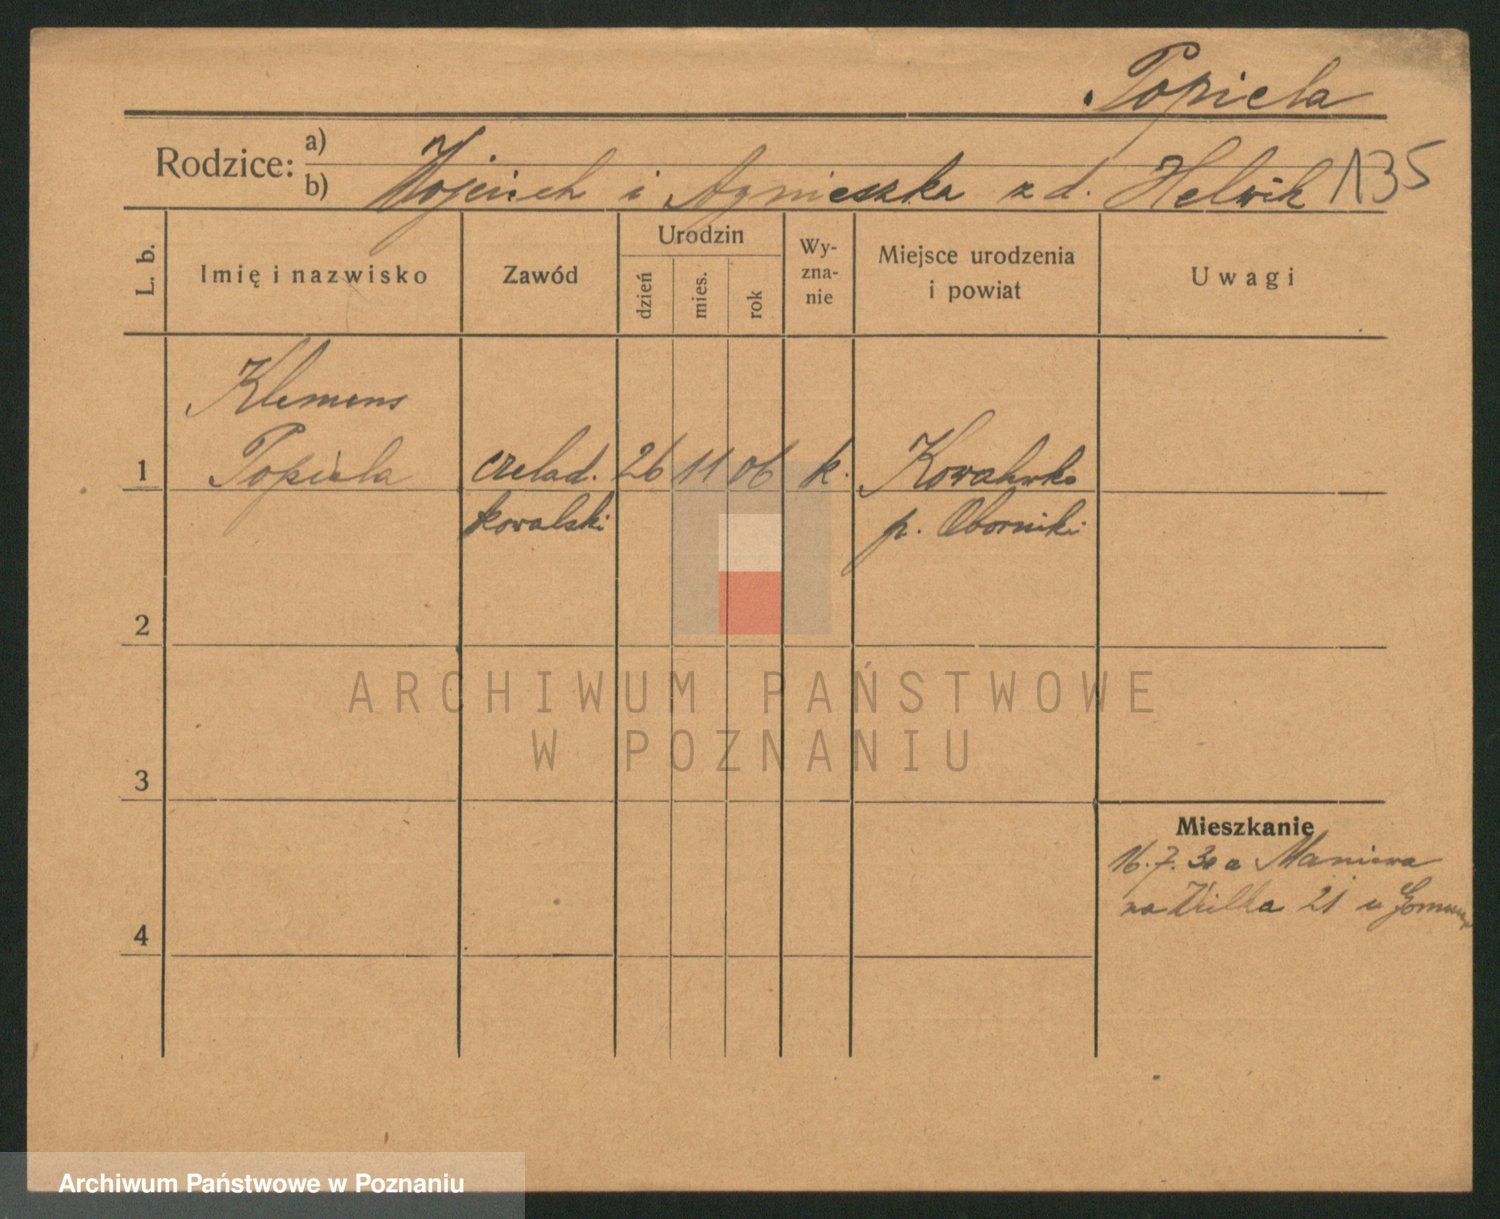 Popiela
Rodzice: a)
b) Wojciech i Agnieszka z d. Helwik 135
L. b. Imię i nazwisko Zawód Urodzin dzień mies. rok Wyzna-nie Miejsce urodzenia i powiat Uwagi
Klemens
1 Popiela czelad. 26 11 06 k. Kowalewko
kowalski p. Oborniki
2
ARCHIWUM PAŃSTWOWE
W POZNANIU
3
Mieszkanie
16.7.30 a
21 u
4
Archiwum Państwowe w Poznaniu